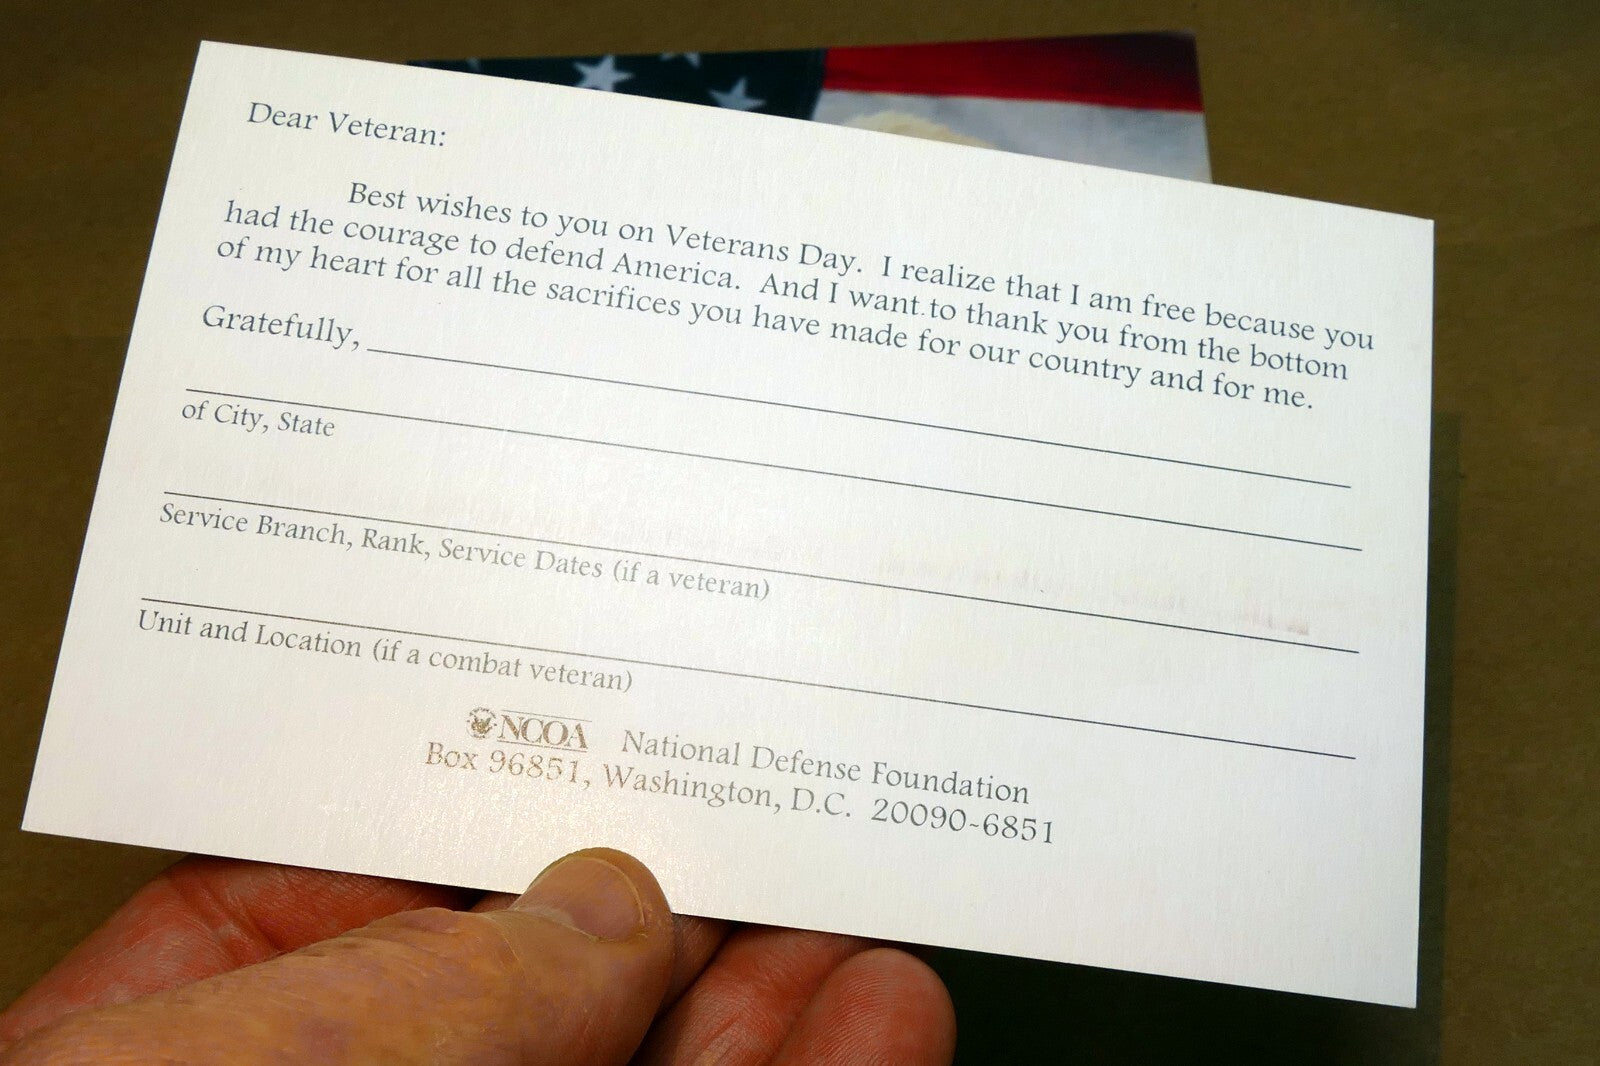 Dear Veteran:
Best wishes to you on Veterans Day. I realize that I am free because you
had the courage to defend America. And I want to thank you from the bottom
of my heart for all the sacrifices you have made for our country and for me.
Gratefully,
of City, State
Service Branch, Rank, Service Dates (if a veteran)
Unit and Location (if a combat veteran)
NCOA National Defense Foundation
Box 96851, Washington, D.C. 20090-6851